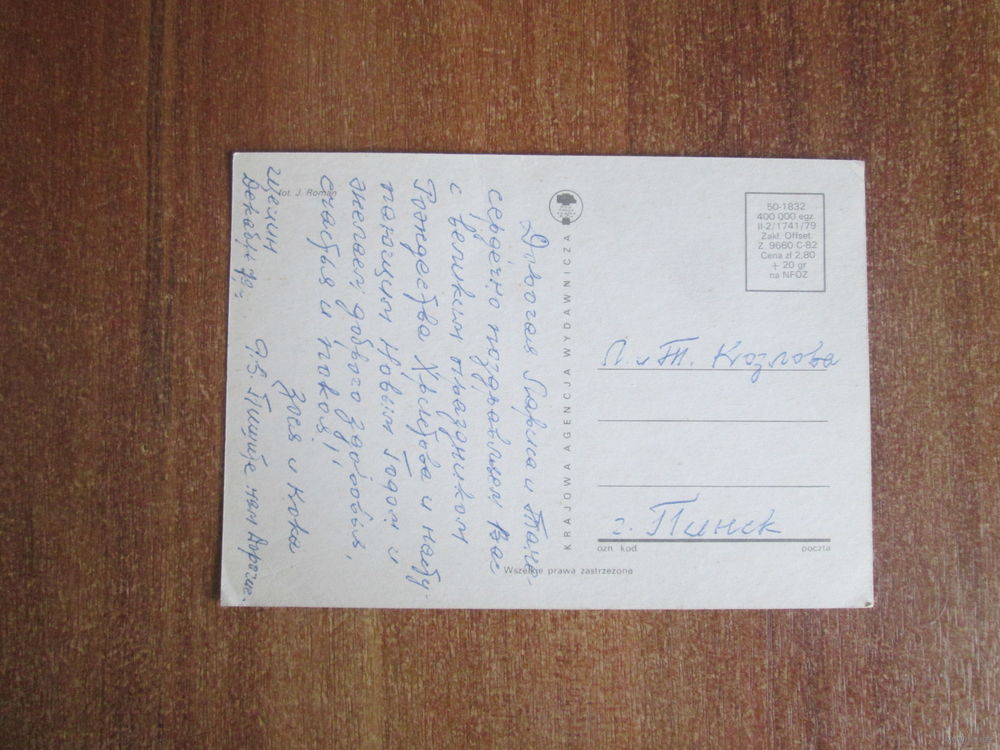 Дорогая Лариса и Таня
сердечно поздравляем Вас
с великим праздником
Рождества Христова и насту-
пающим Новым Годом и
желаем доброго здоровья,
счастья и покоя!
Зося и Кока
Декабрь
P.S. Пишите нам Дорогие.
fot. J. Roman
KRAJOWA AGENCJA WYDAWNICZA
50-1832
400 000 egz
II-2/1741/79
Zakł. Offset
Z. 9660 C-82
Cena zł 2,80
+ 20 gr
na NFOZ
Л. и Т. Козлова
г. Пинск
ozn kod
poczta
Wszelkie prawa zastrzeżone